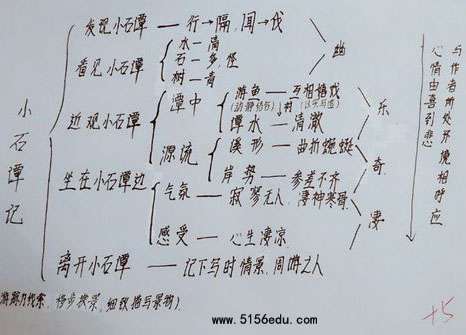 小石潭记
发现小石潭 — 行→隔，闻→伐
看见小石潭
水—清
石—多，怪
树—青
幽
近观小石潭
潭中
游鱼—互相嬉戏
潭水—清澈
乐
源流
溪形—曲折蜿蜒
岸势—参差不齐
奇
坐在小石潭边
气氛—寂寥无人，凄神寒骨
感受—心生凄凉
凄
离开小石潭 — 记下写时情景，同游之人
与作者所处环境相对应
心情由喜到悲
游踪为线索，移步换景，细致描写景物)
+5
www.5156edu.com